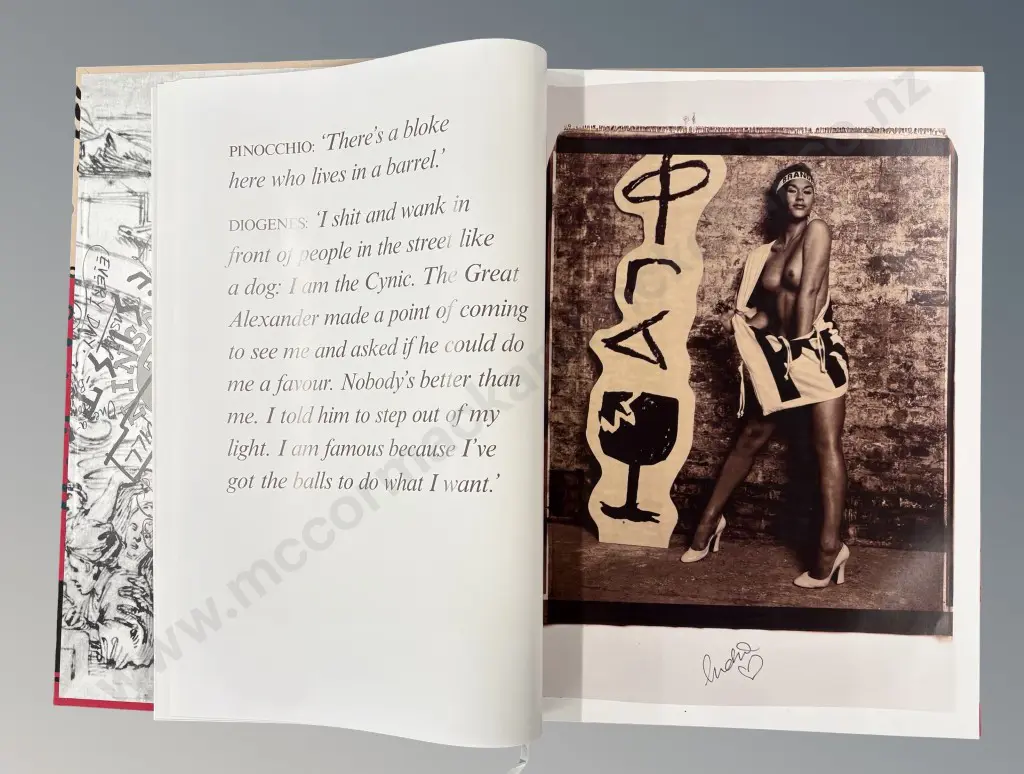 PINOCCHIO: ‘There’s a bloke
here who lives in a barrel.’
DIOGENES: ‘I shit and wank in
front of people in the street like
a dog: I am the Cynic. The Great
Alexander made a point of coming
to see me and asked if he could do
me a favour. Nobody’s better than
me. I told him to step out of my
light. I am famous because I’ve
got the balls to do what I want.’
BRAND
www.mccormack
co.nz